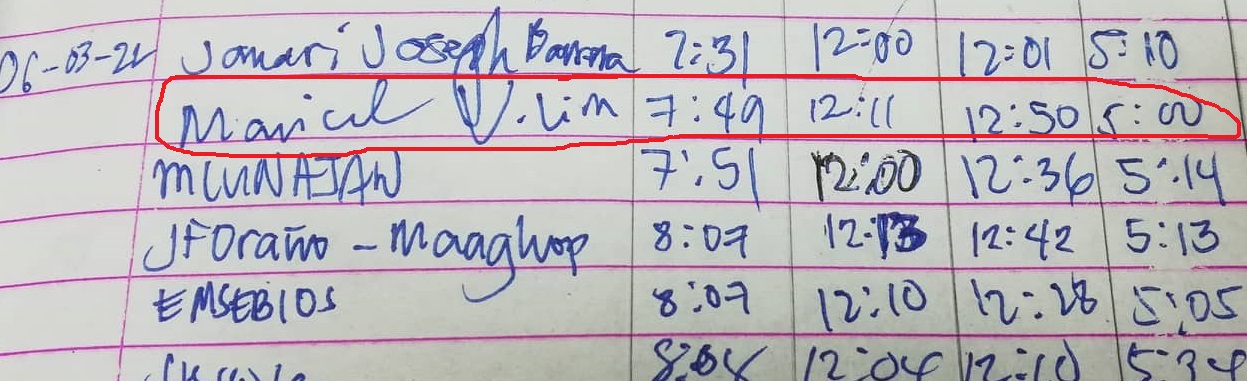 06-03-22 Jomari Joseph 7:31 12:00 12:01 5:10
Maricel V. Lim 7:49 12:11 12:50 5:00
7:51 12:00 12:36 5:14
JFOraño - Maaghop 8:07 12:13 12:42 5:13
EMSEBIOS 8:07 12:10 12:28 5:05
12:04 12:10 5:34